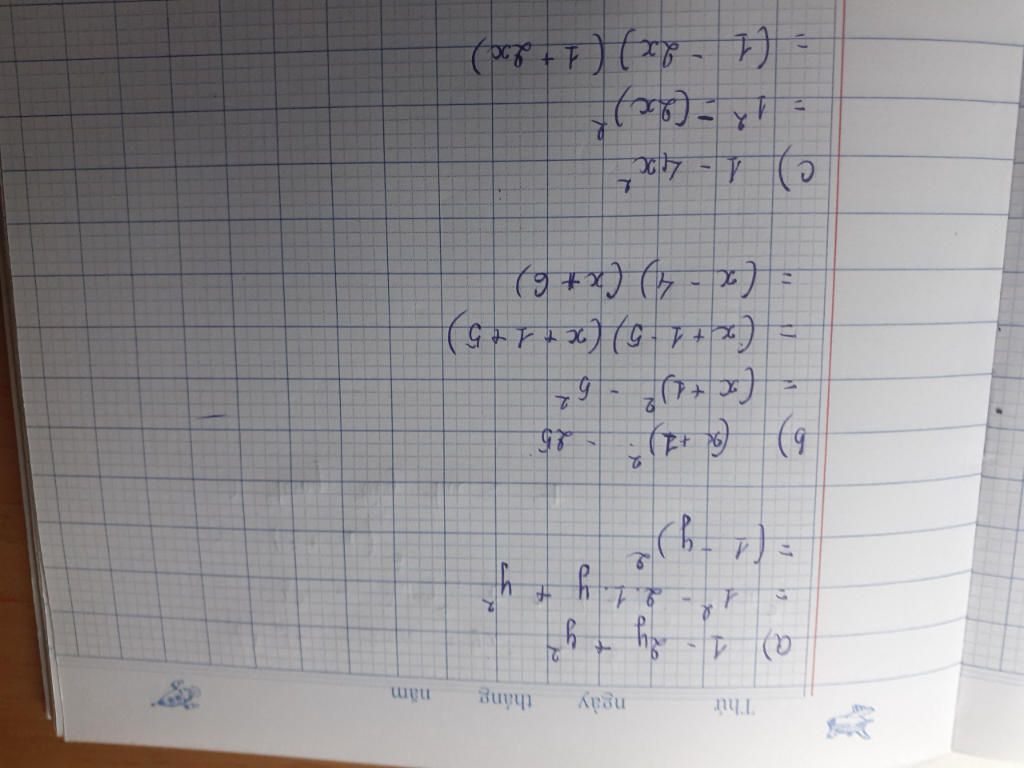 Thứ ngày tháng năm
a) 1 - 2y + y²
= 1² - 2.1.y + y²
= (1 - y)²
b) (x+1)² - 25
= (x+1)² - 5²
= (x+1-5)(x+1+5)
= (x - 4)(x + 6)
c) 1 - 4x²
= 1² - (2x)²
= (1 - 2x)(1 + 2x)